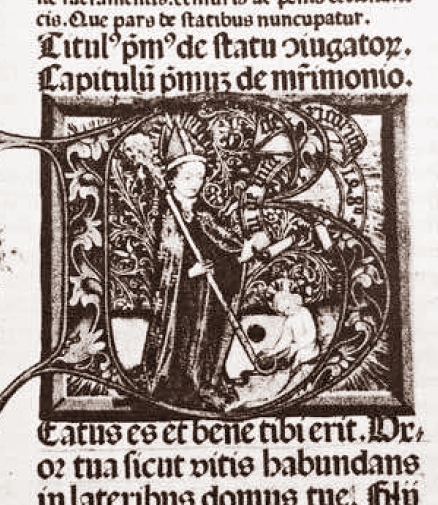 cis. Que pars de statibus nuncupatur.
Titulꝰ pͫmꝰ de statu ↄiugatoꝝ.
Capitulū pͫmuꝫ de mr̄imonio.
B
Eatus es et bene tibi erit. Vx⸗
or tua sicut vitis habundans
in lateribus domus tue. Filij